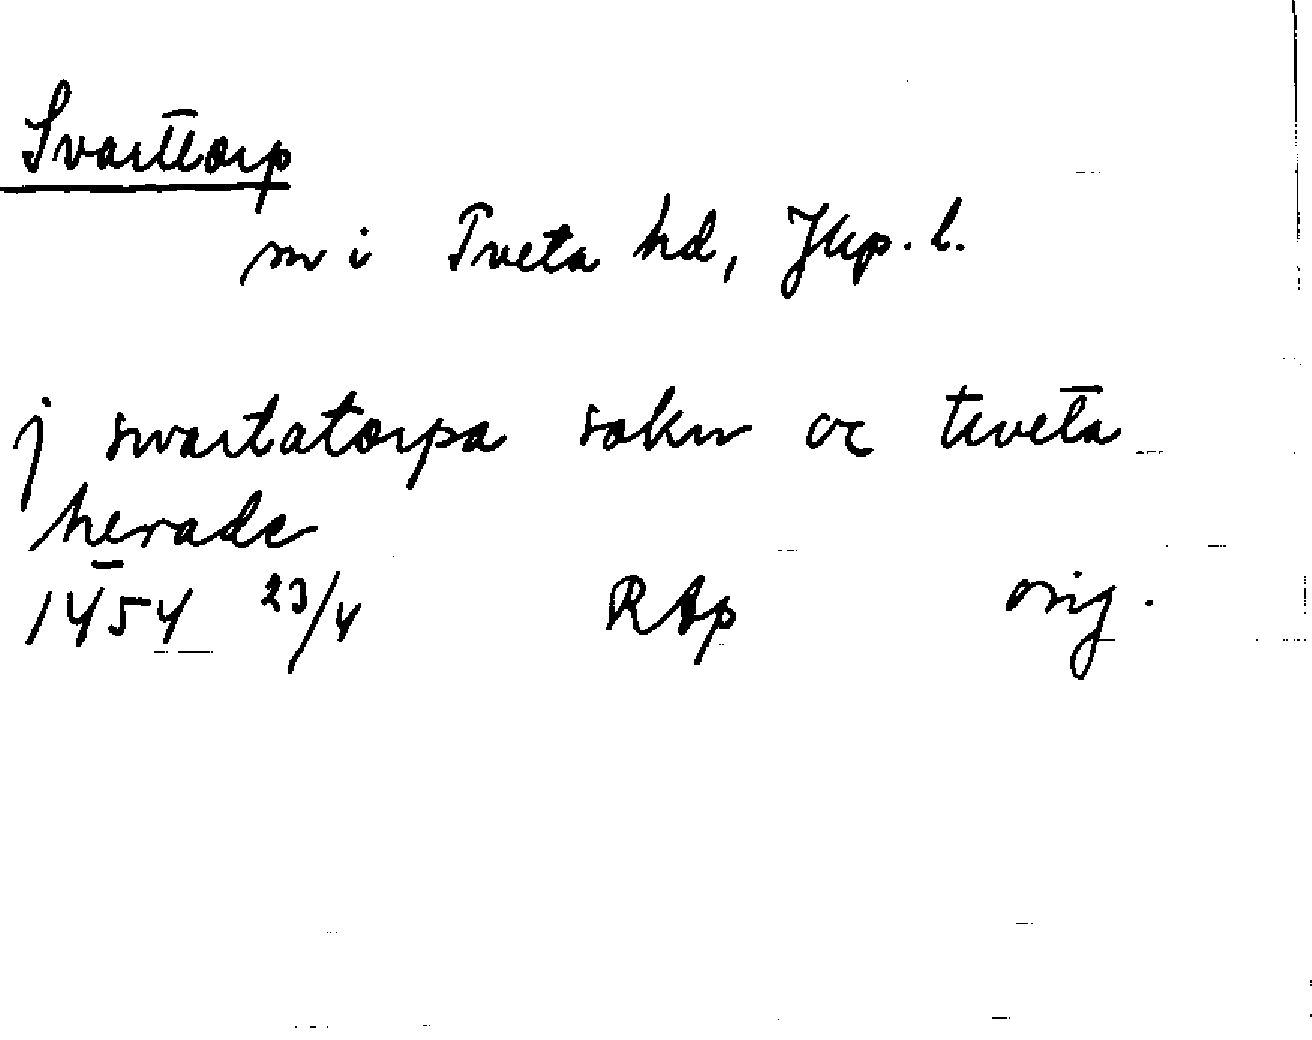 Svarttorp
sn i Tveta hd, Jkp. l.
j swartatorpa sokn oc tweta
herade
1454 23/4 RAp orig.